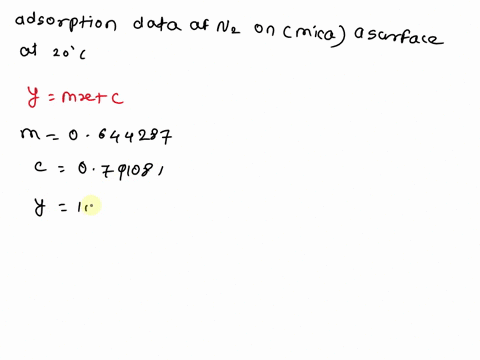 adsorption data of N2 on (mica) a surface
at 20°C
y = mx + c
m = 0.644287
c = 0.791081
y = 1